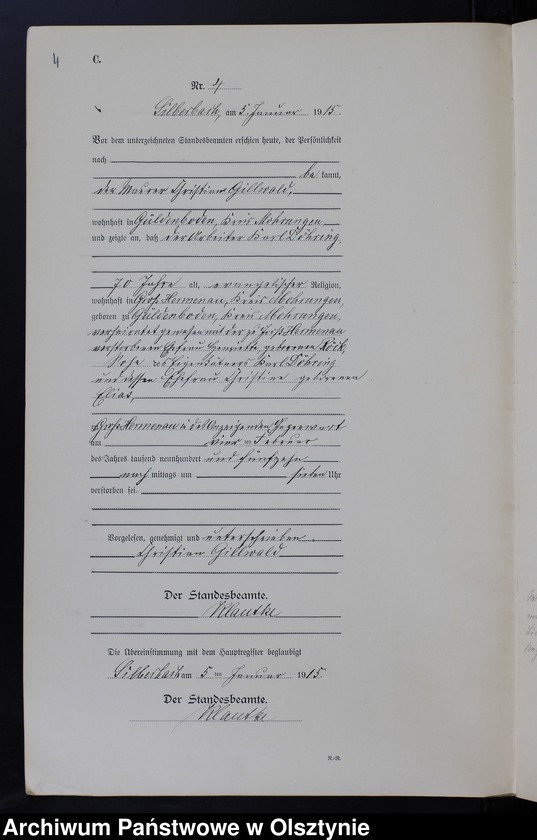 4
C.
Nr. 4
Silberbach, am 5. Januar 1915.
Vor dem unterzeichneten Standesbeamten erschien heute, der Persönlichkeit
nach
be kannt,
der Maurer Christian Gillwald,
wohnhaft in Güldenboden, Kreis Mohrungen
und zeigte an, daß der Arbeiter Karl Döhring,
70 Jahre alt, evangelischer Religion,
wohnhaft in Groß Hermenau, Kreis Mohrungen,
geboren zu Güldenboden, Kreis Mohrungen,
verheiratet gewesen mit der zu Groß Hermenau
verstorbenen Ehefrau Henriette, geborenen
Sohn des Eigentümers Karl Döhring
und dessen Ehefrau Christine geborenen
Elias,
zu Groß Hermenau in des Anzeigenden Gegenwart
am vier ten Februar
des Jahres tausend neunhundert und fünfzehn
nach mittags um sieben Uhr
verstorben sei.
Vorgelesen, genehmigt und unterschrieben.
Christian Gillwald
Der Standesbeamte.
Klautke
Die Übereinstimmung mit dem Hauptregister beglaubigt
Silberbach am 5 ten Januar 1915
Der Standesbeamte.
Klautke
Archiwum Państwowe w Olsztynie